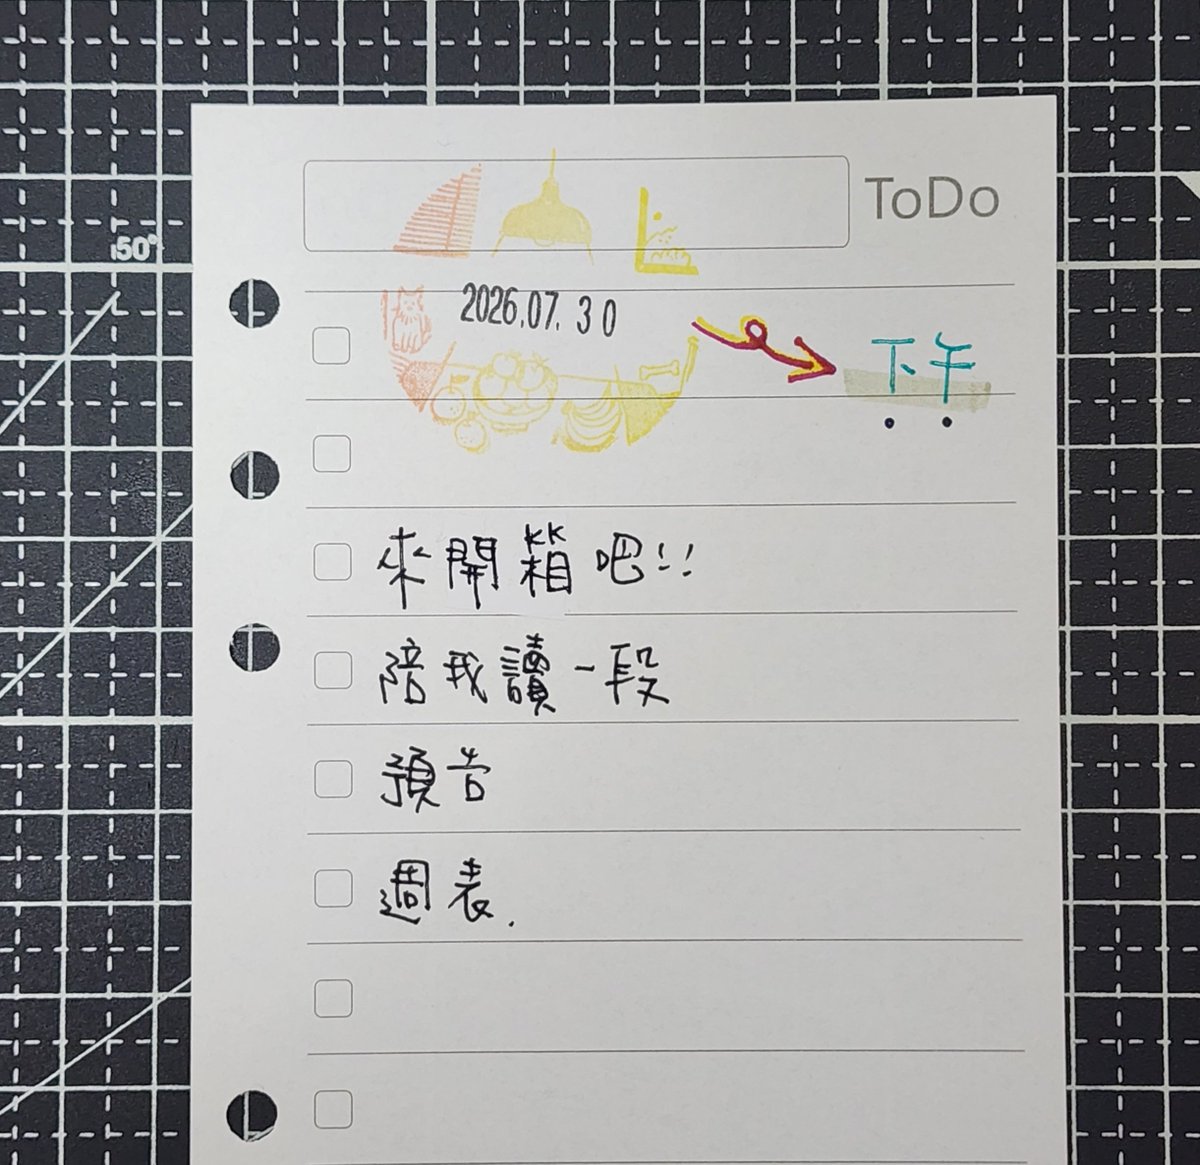 50°
ToDo
2026.07.30
下午
來開箱吧!!
陪我讀一段
預告
週表.